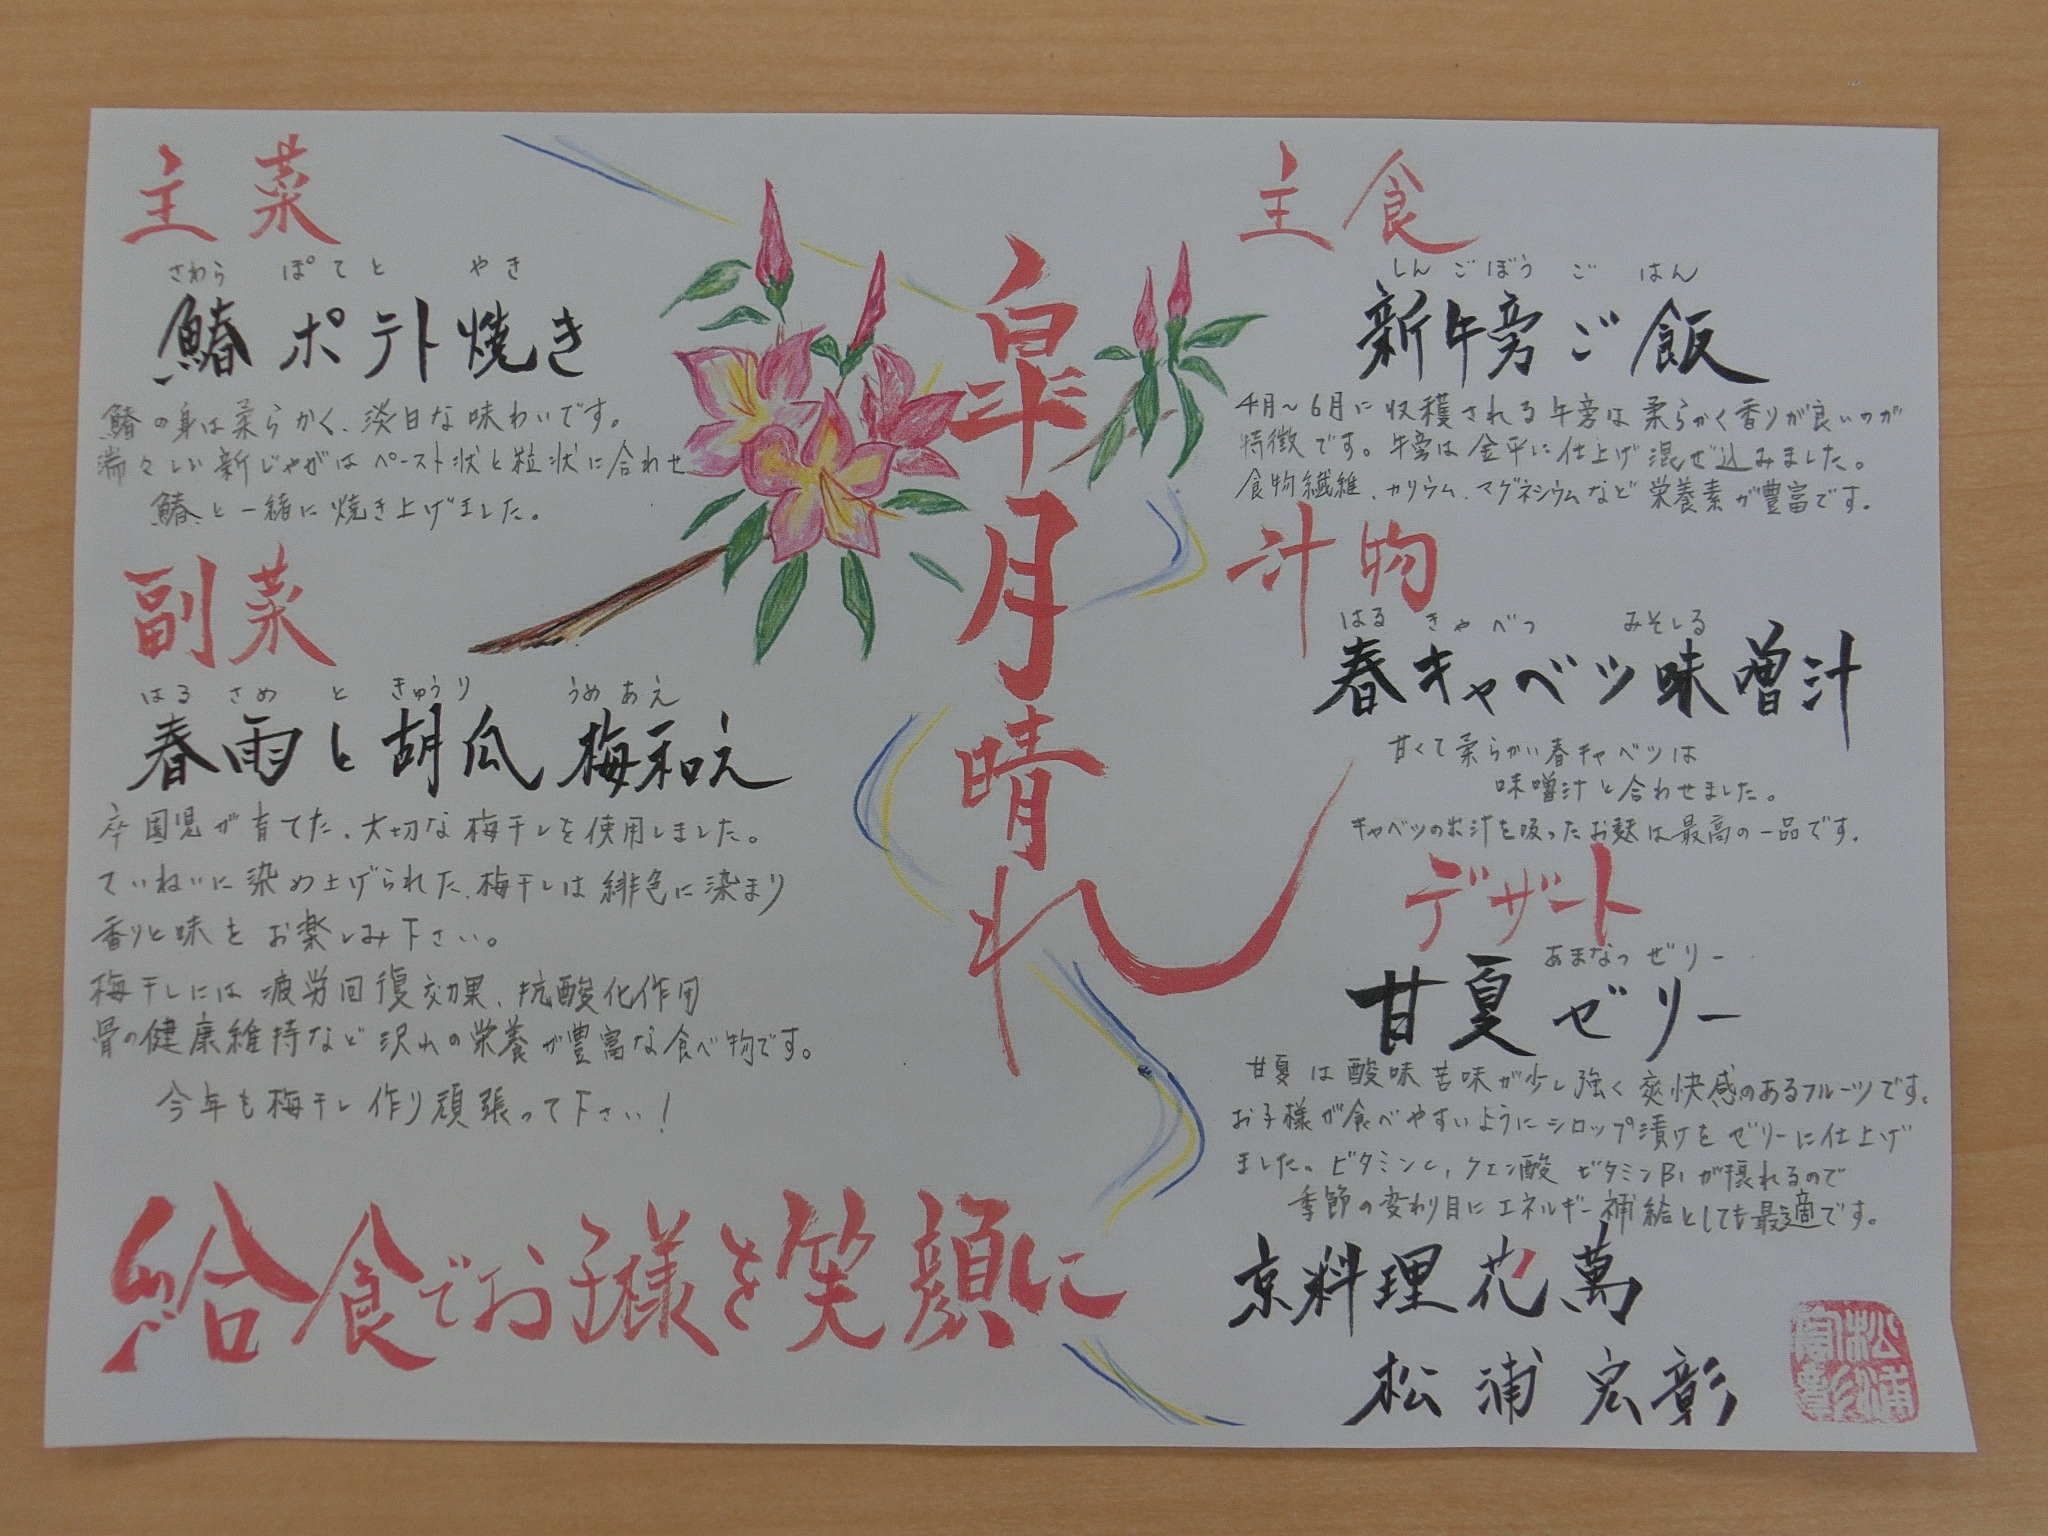 皐月晴れ
主食
しんごぼうごはん
新牛旁ご飯
4月～6月に収穫される牛旁は柔らかく香りが良いのが
特徴です。牛旁は金平に仕上げ混ぜ込みました。
食物繊維、カリウム、マグネシウムなど栄養素が豊富です。
汁物
はるきゃべつ みそしる
春キャベツ味噌汁
甘くて柔らかい春キャベツは
味噌汁と合わせました。
キャベツの出汁を吸ったお麩は最高の一品です。
デザート
あまなつゼリー
甘夏ゼリー
甘夏は酸味苦味が少し強く爽快感のあるフルーツです。
お子様が食べやすいようにシロップ漬けをゼリーに仕上げ
ました。ビタミンC、クエン酸 ビタミンB1が摂れるので
季節の変わり目にエネルギー補給としても最適です。
京料理花萬
松浦宏彰
松浦宏彰
主菜
さわら ぽてと やき
鰆ポテト焼き
鰆の身は柔らかく、淡白な味わいです。
瑞々しい新じゃがはペースト状と粒状に合わせ
鰆と一緒に焼き上げました。
副菜
はるさめ と きゅうり うめあえ
春雨と胡瓜 梅和え
卒園児が育てた、大切な梅干しを使用しました。
ていねいに染め上げられた、梅干しは緋色に染まり
香りと味をお楽しみ下さい。
梅干しには疲労回復効果、抗酸化作用
骨の健康維持など沢山の栄養が豊富な食べ物です。
今年も梅干し作り頑張って下さい！
給食でお子様を笑顔に